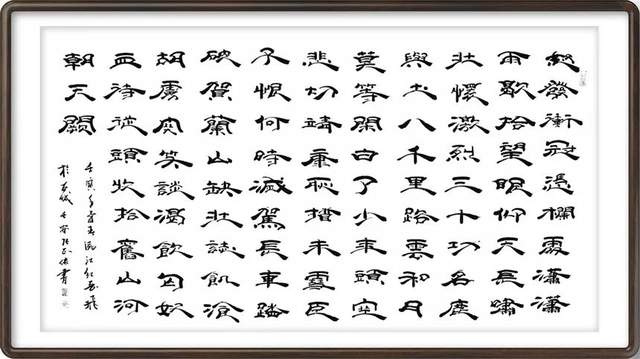 怒發衝冠憑欄處瀟瀟
雨歇抬望眼仰天長嘯
壯懷激烈三十功名塵
與土八千里路雲和月
莫等閑白了少年頭空
悲切靖康恥猶未雪臣
子恨何時滅駕長車踏
破賀蘭山缺壯誌飢飡
胡虜肉笑談渴飲匈奴
血待從頭收拾舊山河
朝天闕
壬寅 滿江紅
書